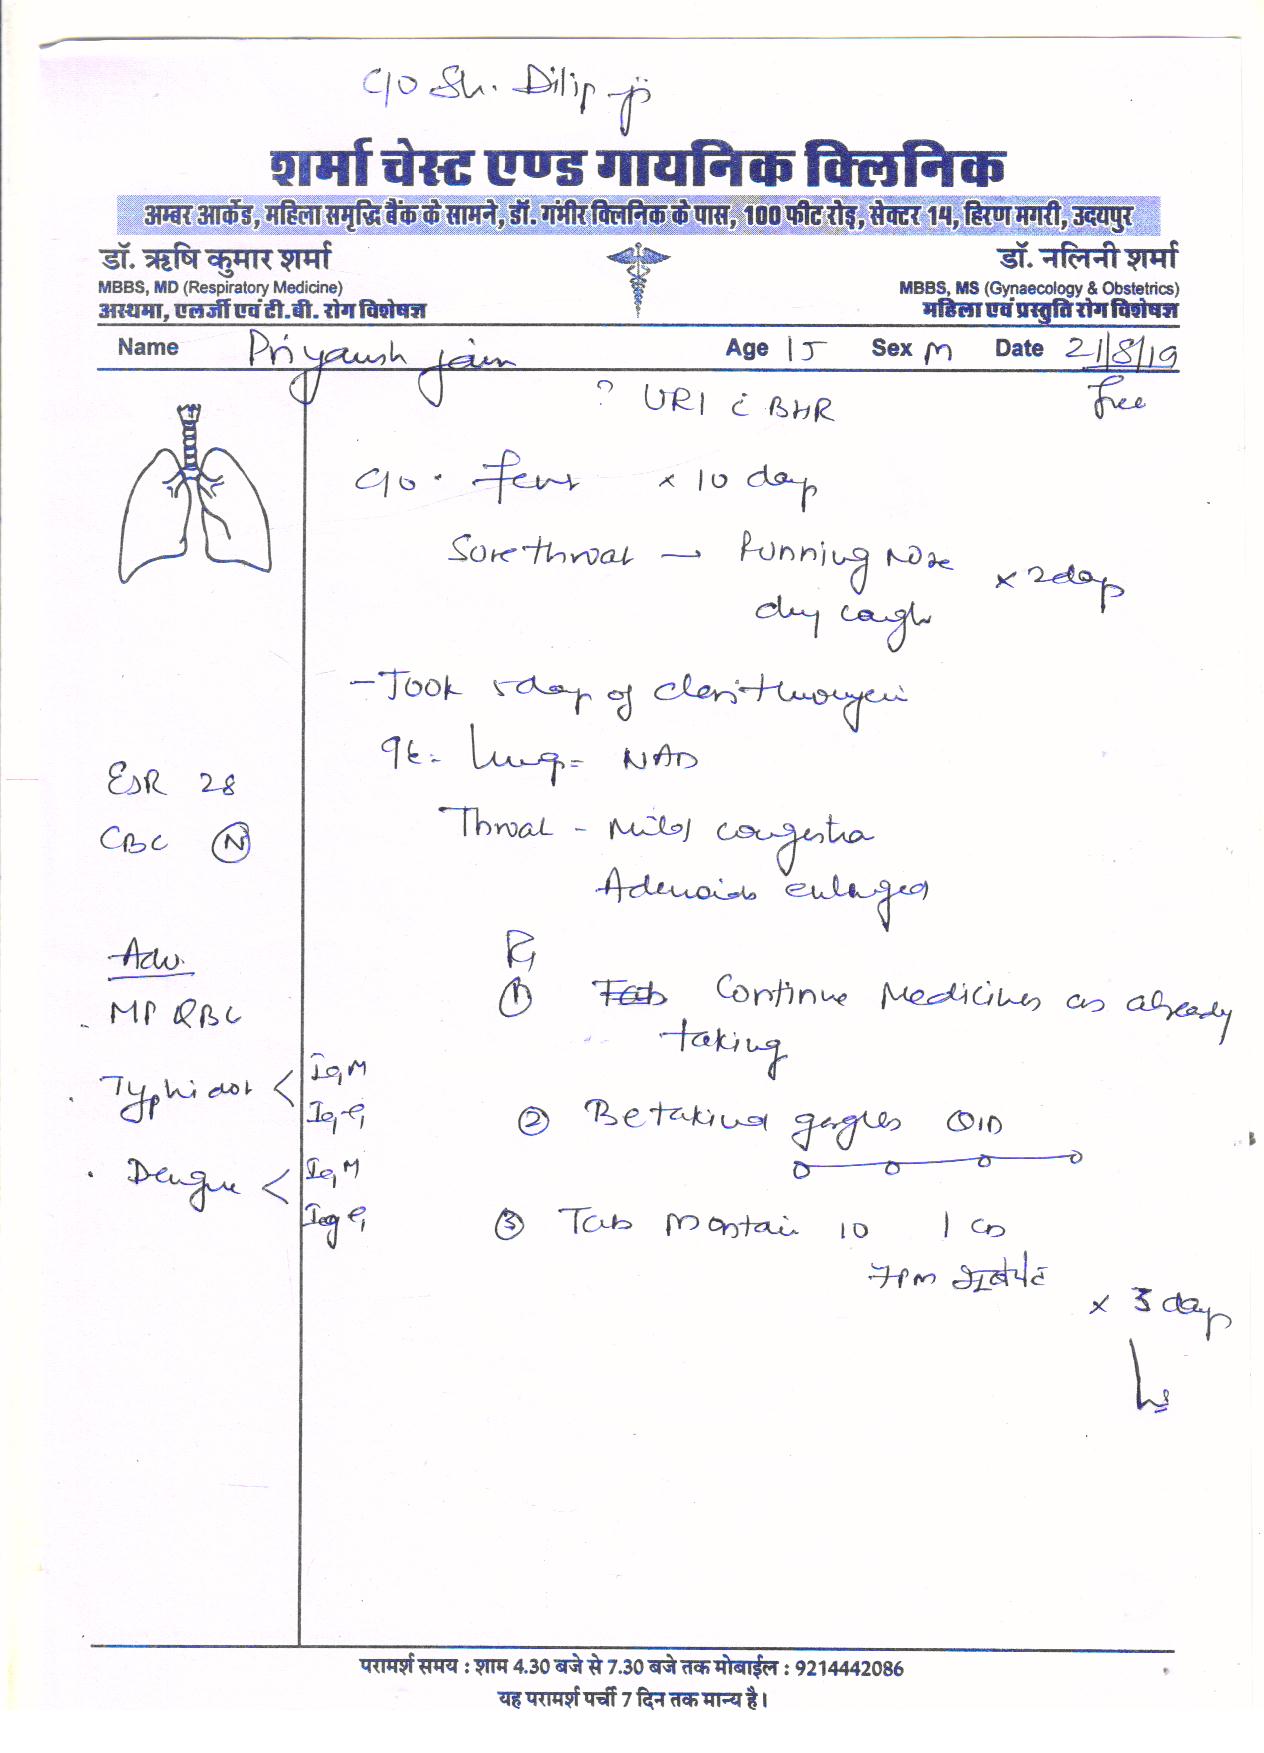 C/O Sh. Dilip ji
शर्मा चेस्ट एण्ड गायनिक क्लिनिक
अम्बर आर्केड, महिला समृद्धि बैंक के सामने, डॉ. गंभीर क्लिनिक के पास, 100 फीट रोड़, सेक्टर 14, हिरण मगरी, उदयपुर
डॉ. ऋषि कुमार शर्मा
MBBS, MD (Respiratory Medicine)
अस्थमा, एलर्जी एवं टी.बी. रोग विशेषज्ञ
डॉ. नलिनी शर्मा
MBBS, MS (Gynaecology & Obstetrics)
महिला एवं प्रस्तुति रोग विशेषज्ञ
Name Priyansh Jain Age 15 Sex M Date 21/8/19
? URI c̄ BHR free
C/O . Fever x 10 days
Sore throat → Running nose x 2 days
dry cough
- Took 5 days of clarithromycin
Lung = NAD
ESR 28
Throat - Mild congestion
CBC (N)
Adenoids enlarged
Adv.
Rx
① Tab Continue Medicines as already
taking
. MP QBC
. Typhidot < IgM
IgG
② Betadine gargles QID
. Dengue < IgM
IgG
③ Tab Montair 10 1 OD
7PM
x 3 days
परामर्श समय : शाम 4.30 बजे से 7.30 बजे तक मोबाईल : 9214442086
यह परामर्श पर्ची 7 दिन तक मान्य है।